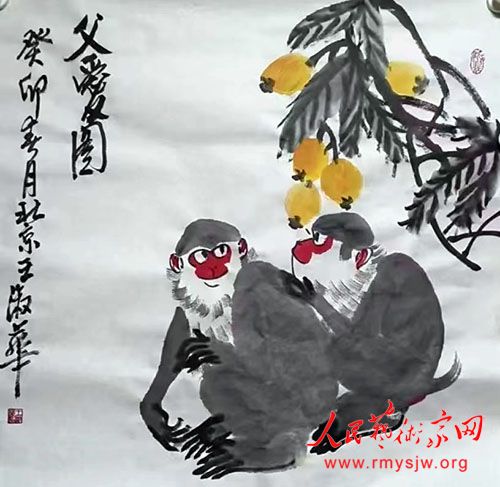 父爱图
癸卯春月北京王淑华
人民艺术家网
www.rmysjw.org